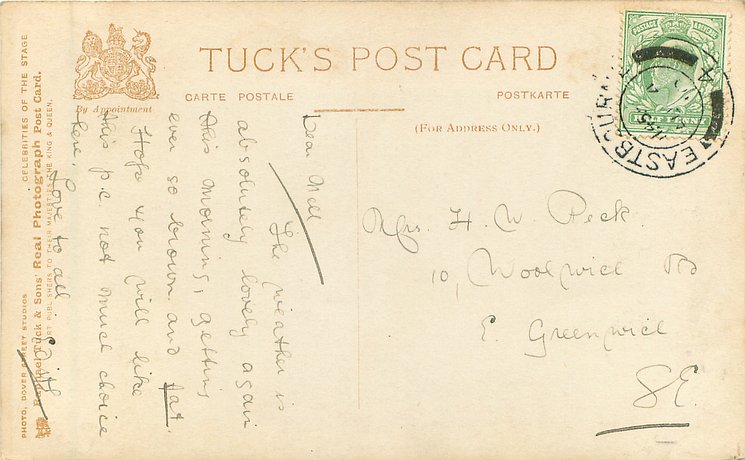 TUCK'S POST CARD
By Appointment
CARTE POSTALE
POSTKARTE
(FOR ADDRESS ONLY.)
POSTAGE
HALF PENNY
EASTBOURNE
Mrs. H. W. Peck.
10, Woolwich Rd
E. Greenwich
S.E.
Dear Nell
The weather is
absolutely lovely again
this morning, getting
ever so brown and fat.
Hope you will like
this p.c. not much choice
here.
Love to all.
Edith
CELEBRITIES OF THE STAGE
Raphael Tuck & Sons' Real Photograph Post Card.
ART PUBLISHERS TO THEIR MAJESTIES THE KING & QUEEN.
PHOTO, DOVER STREET STUDIOS